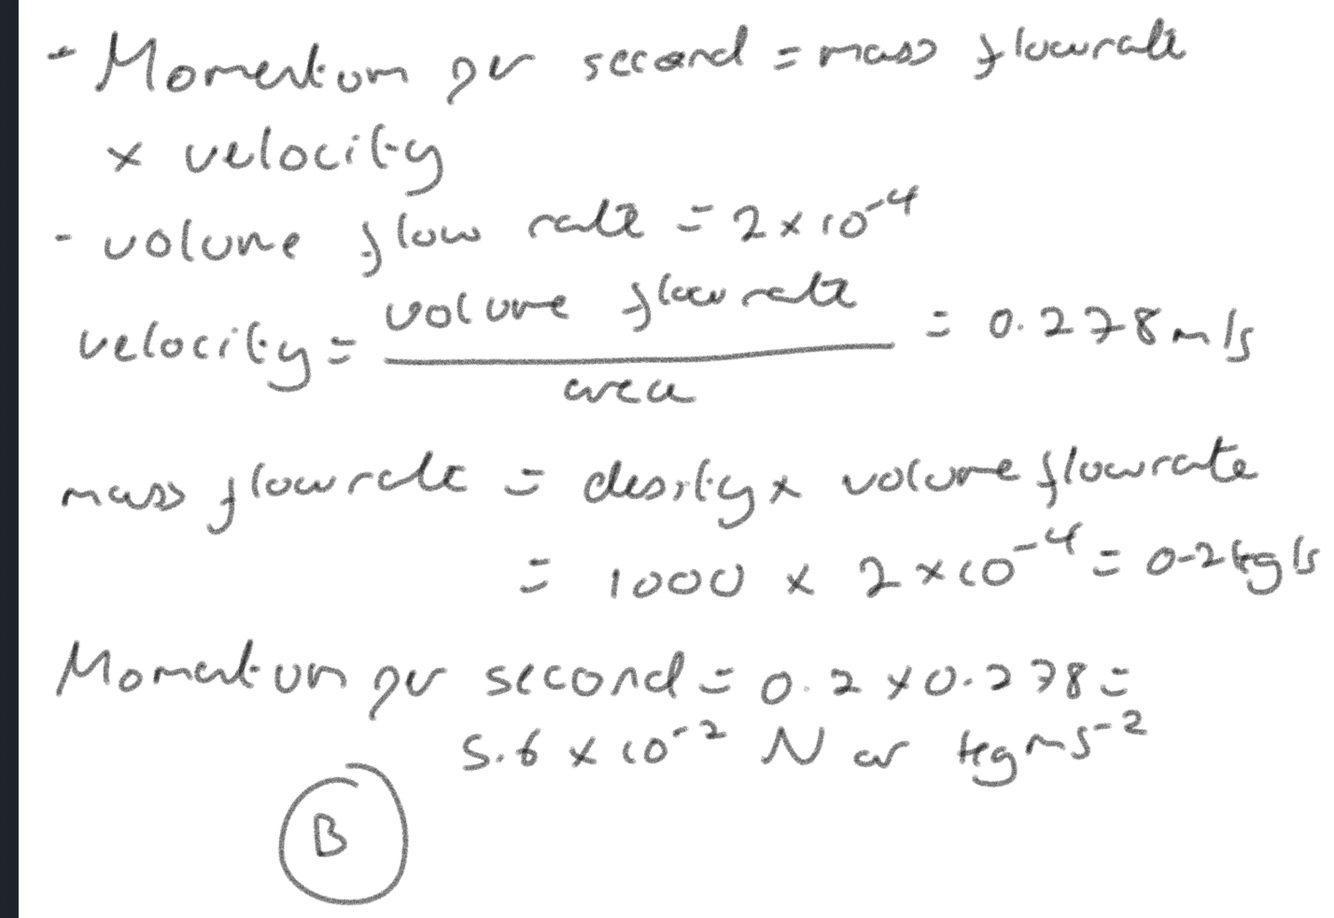 - Momentum per second = mass flowrate
× velocity
- volume flow rate = 2 × 10⁻⁴
velocity = volume flow rate / area = 0.278 m/s
mass flowrate = desity × volume flowrate
= 1000 × 2 × 10⁻⁴ = 0.2 kg/s
Momentum per second = 0.2 × 0.278 =
5.6 × 10⁻² N or kgms⁻²
B